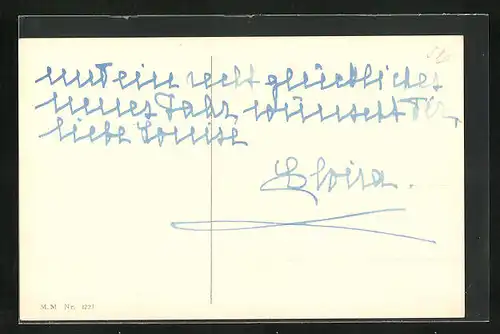 und ein recht glückliches
neues Jahr wünscht Dir,
liebe Louise
Elvira.
M.M Nr. 1221